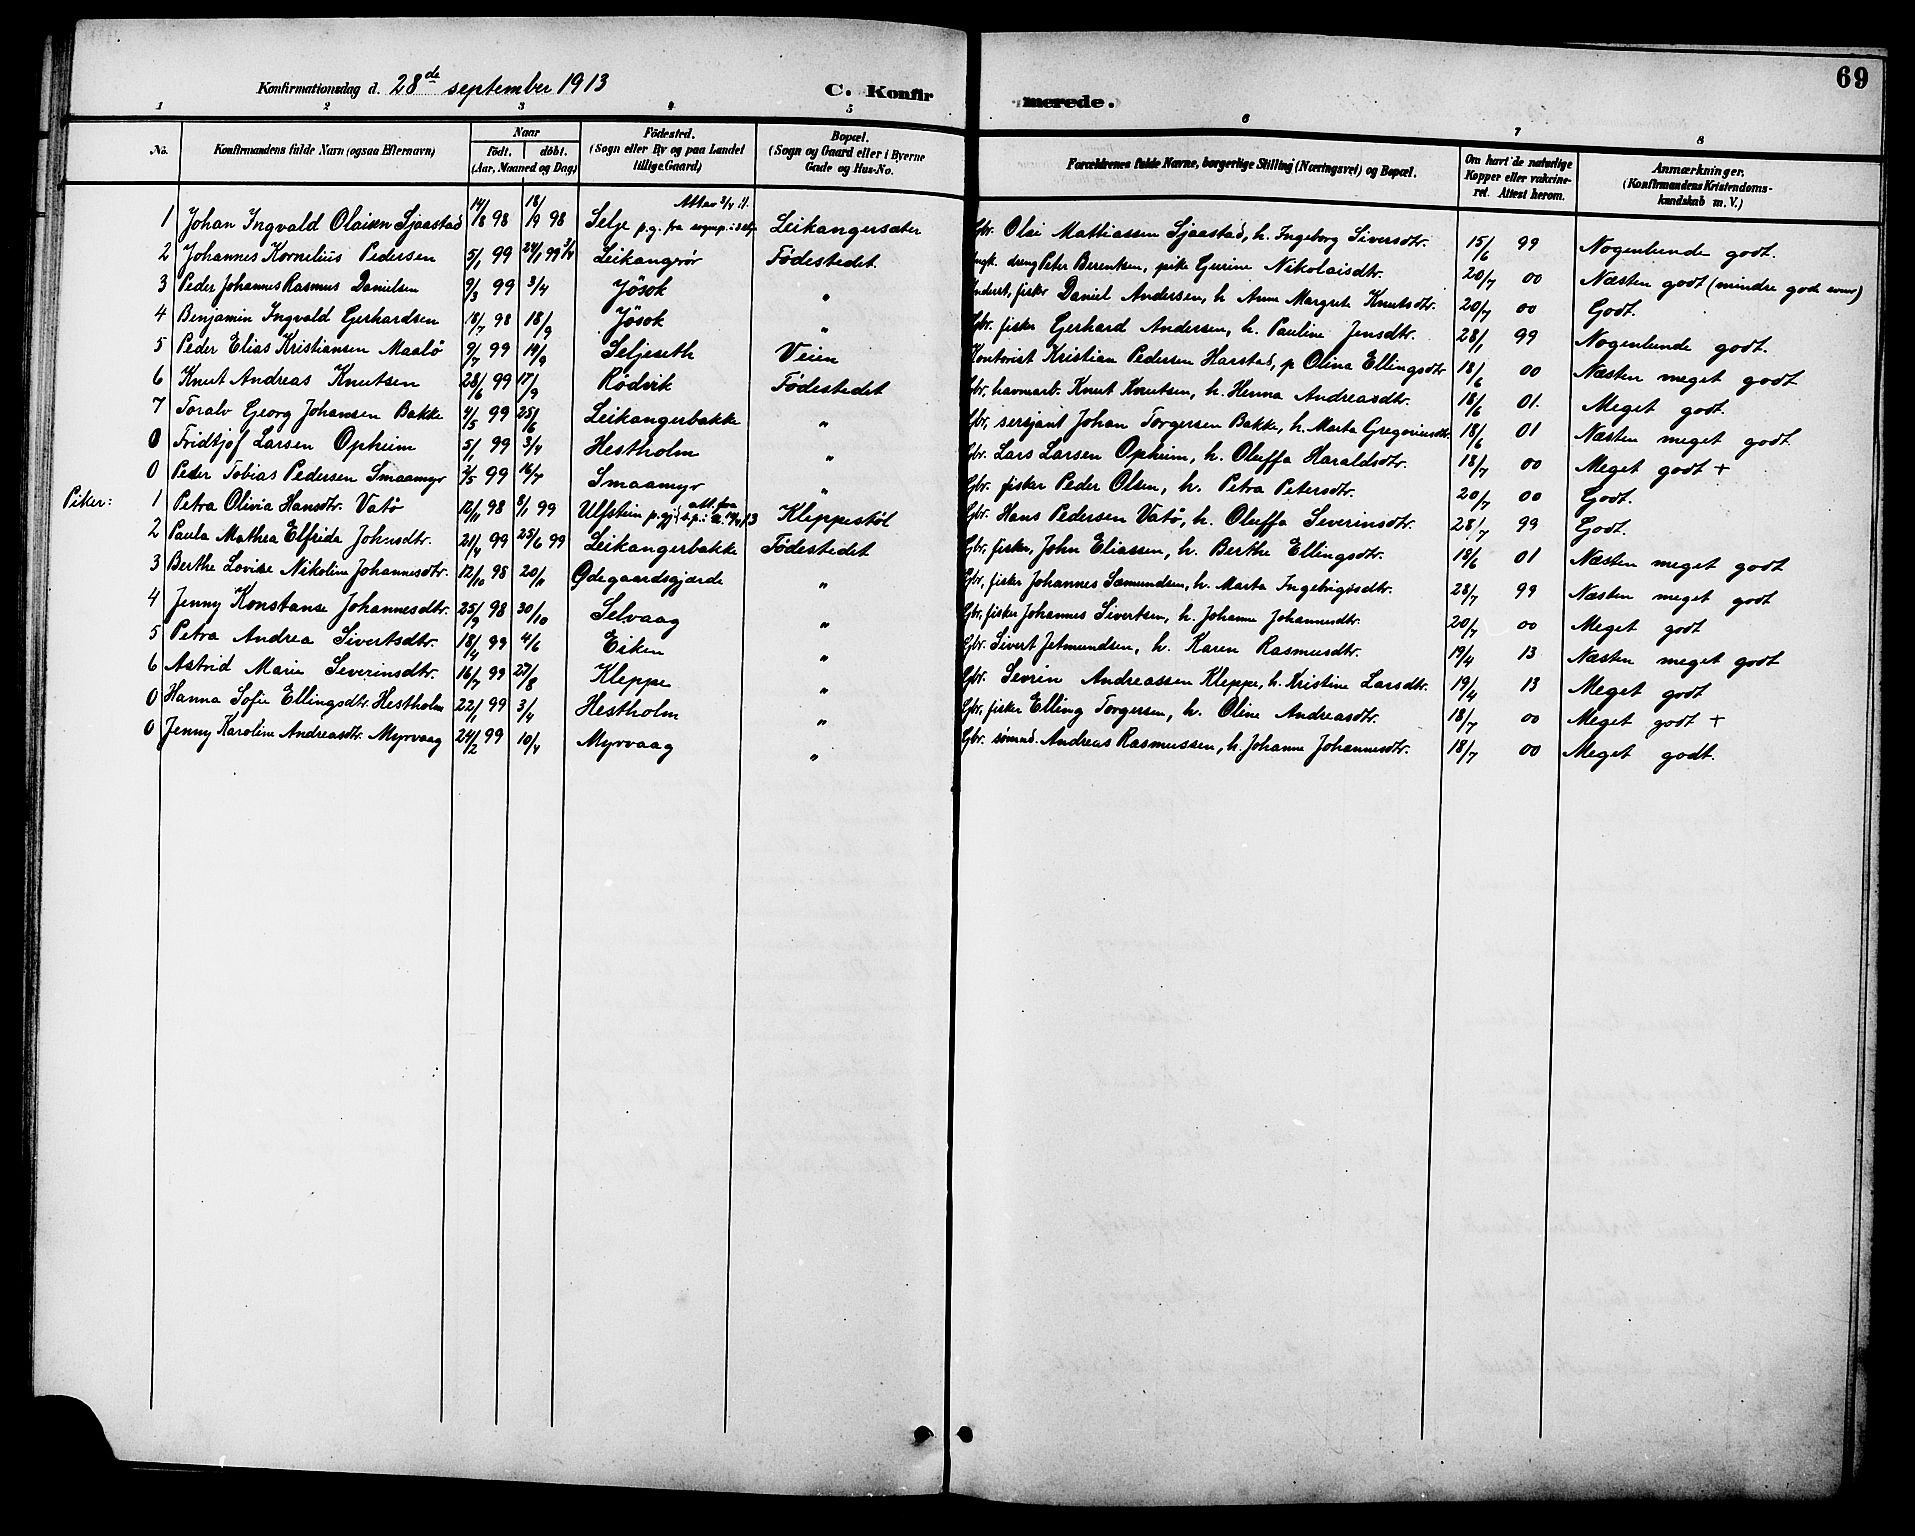 69
Konfirmationsdag d. 28de september 1913 C. Konfirmerede.
1 2 3 4 5 6 7 8
No. Konfirmandens fulde Navn (ogsaa Efternavn) Naar født, døbt. (Aar, Maaned og Dag) Fødested. (Sogn eller By og paa Landet tillige Gaard) Bopæl. (Sogn og Gaard eller i Byerne Gade og Hus-No. Forældrenes fulde Navne, borgerlige Stilling (Næringsvei) og Bopæl. Om havt de naturlige Kopper eller vakcineret. Attest herom. Anmærkninger. (Konfirmandens Kristendomskundskab m. V.)
1 Johan Ingvald Olaisen Sjaastad 14/8 98 18/9 98 Selje p.g. fra sognp. i Selje Leikangersæter Gbr. Olai Mathiassen Sjaastad, h. Ingeborg Siversdtr. 15/6 99 Nogenlunde godt.
2 Johannes Kornelius Pedersen 5/1 99 24/1 99 3/4 Leikangrør Fødestedet. Ungk. dreng Peter Berentsen, pike Gurine Nikolaisdtr. 20/7 00 Næsten godt (mindre gode evner)
3 Peder Johannes Rasmus Danielsen 9/3 99 3/4 Jøsok " Inderst, fisker Daniel Andersen, h. Anne Margrete Knutsdtr. 20/7 00 Godt.
4 Benjamin Ingvald Gerhardsen 18/7 98 18/9 Jøsok " Gbr. fisker Gerhard Andersen, h. Pauline Jensdtr. 28/1 99 Nogenlunde godt.
5 Peder Elias Kristiansen Maalø 9/7 99 14/9 Seljeseth Veien Kontorist Kristian Pedersen Harstad, p Olina Ellingsdtr 18/6 00 Næsten meget godt
6 Knut Andreas Knutsen 28/6 99 17/9 Rødvik Fødestedet Gbr, havnarb. Knut Knutsen, h. Henna Andreasdtr. 18/6 01. Meget godt.
7 Toralv Georg Johansen Bakke 4/5 99 25/6 Leikangerbakke " Gbr, sersjant Johan Torgersen Bakke, h. Marta Gregoriusdtr. 18/6 01 Næsten meget godt.
0 Fridtjof Larsen Opheim 5/1 99 3/4 Hestholm " Gbr. Lars Larsen Opheim, h. Oluffa Haraldsdtr. 18/7 00 Meget godt +
0 Peder Tobias Pedersen Smaamyr 2/5 99 16/7 Smaamyr " Gbr. fisker Peder Olsen, h. Petra Petersdtr. 20/7 00 Godt.
Piker: 1 Petra Olivia Hansdtr. Vatø 12/11 98 8/1 99 Ulfstein p.gj. Kleppestøl Gbr. Hans Pedersen Vatø, h. Oluffa Severinsdtr. 28/7 99 Godt.
2 Paula Mathea Elfrida Johnsdtr. 21/4 99 25/6 99 Leikangerbakke Fødestedet Gbr, fisker, John Eliassen, h. Berthe Ellingsdtr. 18/6 01 Næsten meget godt
3 Berthe Lovise Nikoline Johannesdtr. 12/10 98 20/11 Ødegaardsgjærde " Gbr, fisker Johannes Samundsen, h. Marta Ingebrigtsdtr. 28/7 99 Næsten meget godt
4 Jenny Konstanse Johannesdtr. 25/9 98 30/10 Selvaag " Gbr, fisker Johannes Sivertsen, h. Johanne Johannesdtr. 20/7 00 Meget godt
5 Petra Andrea Sivertsdtr. 18/4 99 4/6 Eiken " Gbr. Sivert Jetmundsen, h. Karen Rasmusdtr. 19/4 13 Næsten meget godt
6 Astrid Marie Severinsdtr. 16/7 99 27/8 Kleppe " Gbr. Sevrin Andreassen Kleppe, h. Kristine Larsdtr. 19/4 13 Meget godt
0 Hanna Sofie Ellingsdtr. Hestholm 22/1 99 3/4 Hestholm " Gbr, fisker Elling Torgersen, h. Oline Andreasdtr. 18/7 00 Meget godt +
0 Jenny Karoline Andreasdtr. Myrvaag 24/2 99 10/4 Myrvaag " Gbr. sømnd. Andreas Rasmussen, h. Johanne Johannesdtr. 18/7 00 Meget godt.